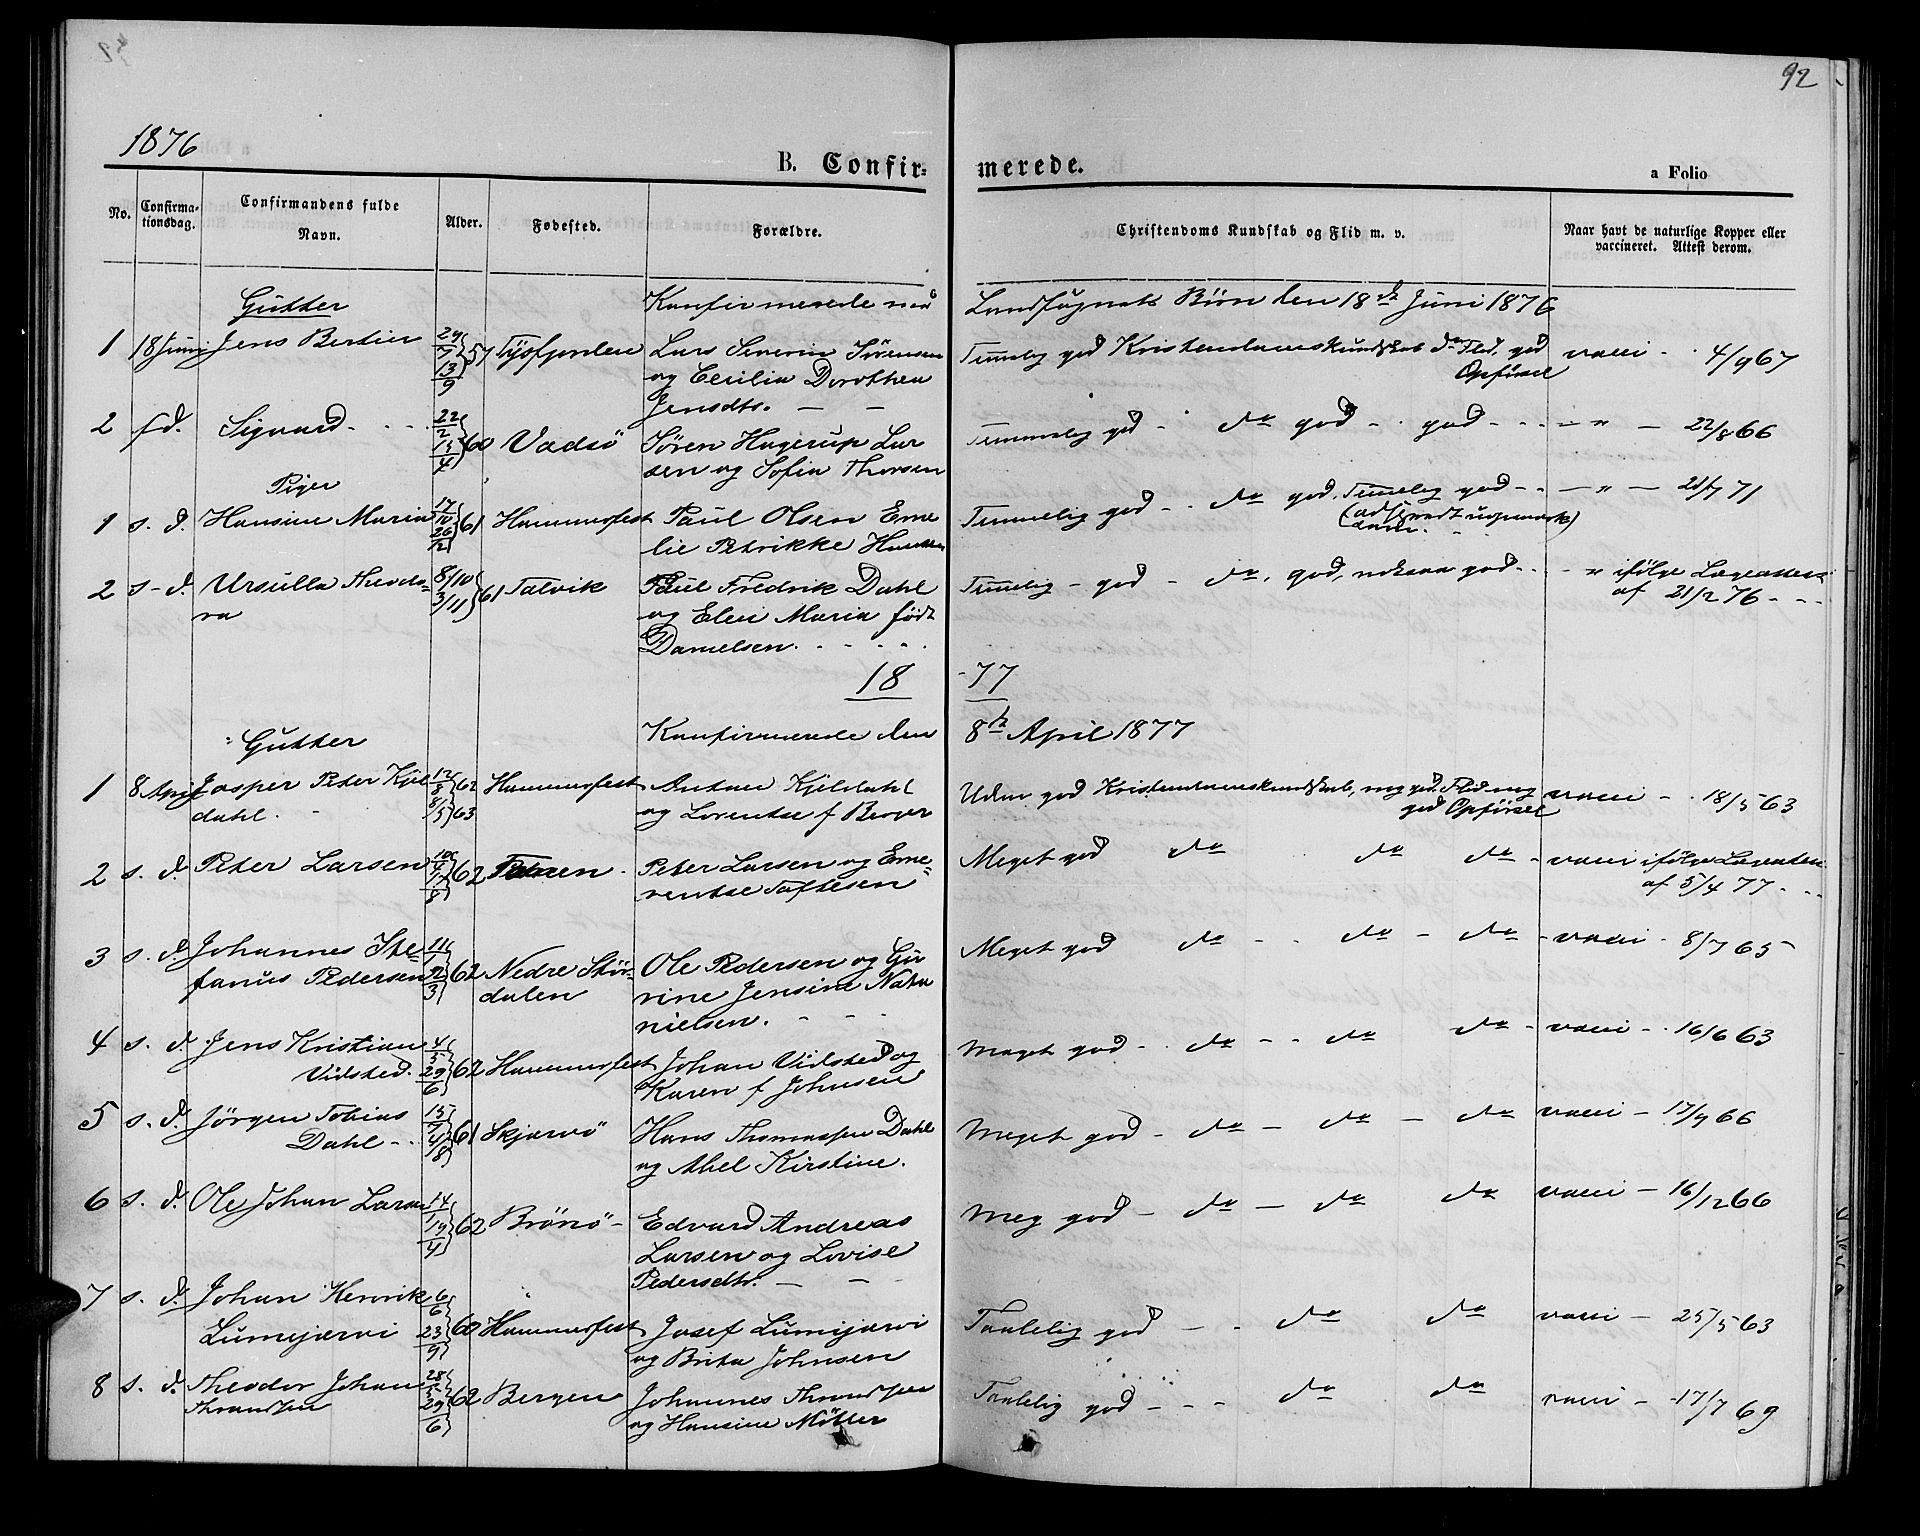 92
1876
B. Confir-
merede.
a Folio
No.
Confirma-
tionsdag.
Confirmandens fulde
Navn.
Alder.
Fødested.
Forældre.
Christendoms Kundskab og Flid m. v.
Naar havt de naturlige Kopper eller
vaccineret. Attest derom.
Gutter
Konfirmerede med
Landsognets Börn den 18de Juni 1876
1 18 Juni Jens Bertin 29/7 13/9 57 Tysfjorden Lars Severin Sørensen
og Cecilia Dorothea
Jensdtr. — —
Temmelig god Kristendomskundskab do Flid, god
Opførsel
vacci - . 4/9 67
2 sd. Sigvard - 22/2 60 Vadsö Sören Hagerup Lar
sen og Sofia Thorsen
Temmelig god - do god - . god - - - - " - 22/8 66
Piger
1 s. d. Hansine Maria 17/10 26/12 61 Hammerfest Paul Olsen Eme
lie Petrikke
Temmelig god - . do god, Temmelig god - - - " - 21/7 71
2 s - d. Ursulla Theodo-
ra
8/10 3/11 61 Talvik Paul Fredrik Dahl
og Elen Maria födt
Danielsen. - - - -
Temmelig - god - do, god, god - - - " ifölge Lægeattest
af 21/2 76 - - -
18
-77
Gutter
Konfirmerede den
8de April 1877
1 8 April Jasper Peter Kjel
dahl. -
12/8 62 8/5 63 Hammerfest Anton Kjeldahl
og Lorentse f Berger
Uden god Kristendomskundskab, mg god Flid mg
god Opførsel
vacci - . 18/5 63
2 s. d. Peter Larsen 62 Peter Larsen og Eme-
rentse Toftesen
Meget god do do do - vacci ifölge Lægeattest
af 5/4 77 - - -
3 s. d. Johannes Ste-
fanus Pedersen
11/1 12/3 62 Nedre Stör-
dalen
Ole Pedersen og Gu
rine Jensine Nata
nielsen. - - -
Meget god do - . do - do - vacci - 8/7 65
4 s. d. Jens Kristian
Vidsted.
4/5 29/6 62 Hammerfest Johan Vidsted og
Karen f Johnsen
Meget god - . do - . do do - vacci - . 16/6 63
5 s. d. Jörgen Tobias
Dahl - .
15/7 4/8 61 Skjærvö Hans Thomassen Dahl
og Abel Kirstine.
Meget god - do - do - do - vacci - 17/9 66
6 s. d. Ole Johan Larsen 14/1 19/4 62 Brönö - Edvard Andreas
Larsen og Lovise
Pedersdtr. — —
Meg god - do - do do vacci - 16/12 66
7 s. d. Johan Henrik
Lumijarvi
6/6 23/9 60 Hammerfest Josef Lumijarvi
og Brita Johnsen
Taalelig god - - do do vacci - 25/5 63
8 s. d. Theodor Johan
Thrandsen
28/5 29/6 62 Bergen Johannes Thrandsen
og Hansine Möller
Taalelig god - - - do do vacci - 17/7 69